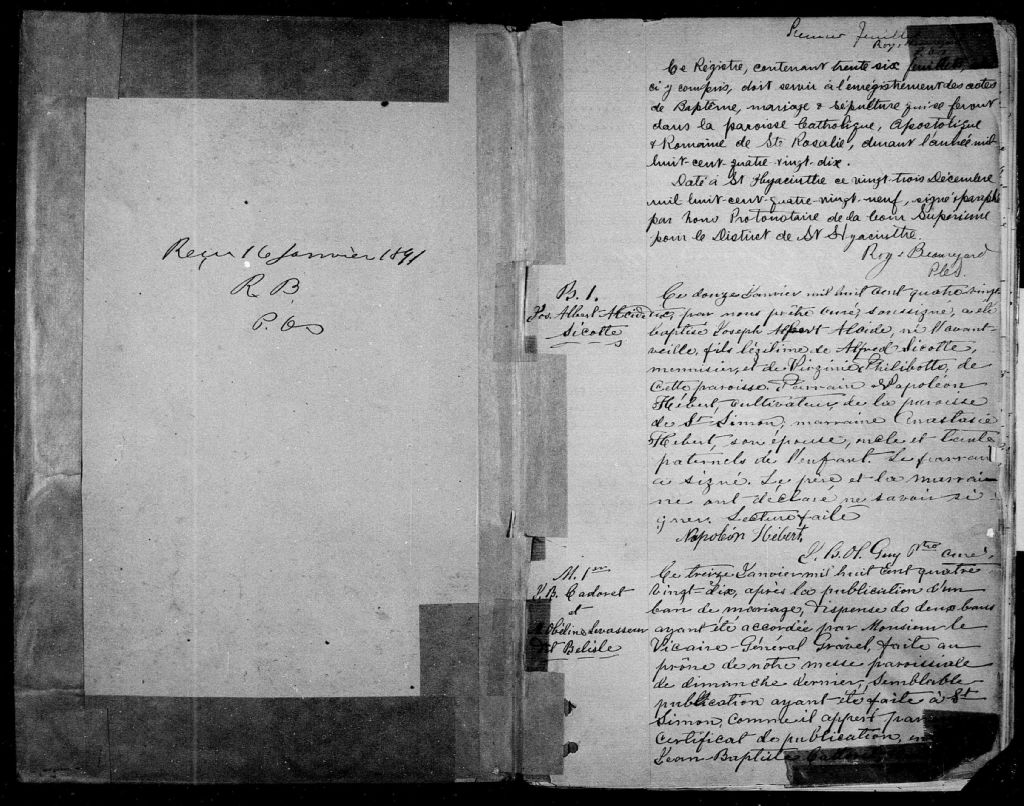 Reçu 16 Janvier 1891
R B.
P. Cs
Premier feuillet
Roy &
Ce Régistre, contenant trente six feuillets,
ci y compris, doit servir à l'enrégistrement des actes
de Baptême, mariage & sépulture qui se feront
dans la paroisse Catholique, Apostolique
& Romaine de Ste Rosalie, durant l'année mil
huit-cent-quatre-vingt-dix.
Daté à St Hyacinthe ce vingt-trois Décembre
mil huit-cent-quatre-vingt-neuf, signé & paraphé
par nous Protonotaire de la Cour Supérieure
pour le District de St Hyacinthe.
Roy & Beauregard
P.C.S.
B. 1.
Jos. Albert Alcide
Sicotte
Ce douze Janvier mil huit cent quatre vingt
dix, par nous prêtre curé, soussigné, a été
baptisé Joseph Albert Alcide, né l'avant-
veille, fils légitime de Alfred Sicotte,
menuisier, et de Virginie Philibotte, de
cette paroisse. Parrain Napoléon
Hébert, cultivateur, de la paroisse
de St Simon; marraine Anastasie
Hébert, son épouse, oncle et tante
paternels de l'enfant. Le parrain
a signé. Le père et la marrai-
ne ont déclaré ne savoir si-
gner. Lecture faite
Napoléon Hébert.
J. B. O. Guy Ptre curé.
M. 1er
J. B. Cadoret
et
Obéline Levasseur
dit Belisle
Ce treize Janvier mil huit cent quatre
vingt-dix, après la publication d'un
ban de mariage, dispense de deux bans
ayant été accordée par Monsieur le
Vicaire-Général Gravel, faite au
prône de notre messe paroissiale
de dimanche dernier, semblable
publication ayant été faite à St
Simon, comme il appert par
certificat de publication,
Jean Baptiste